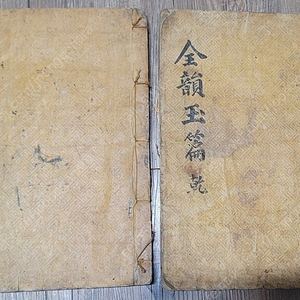 全韻玉篇 乾